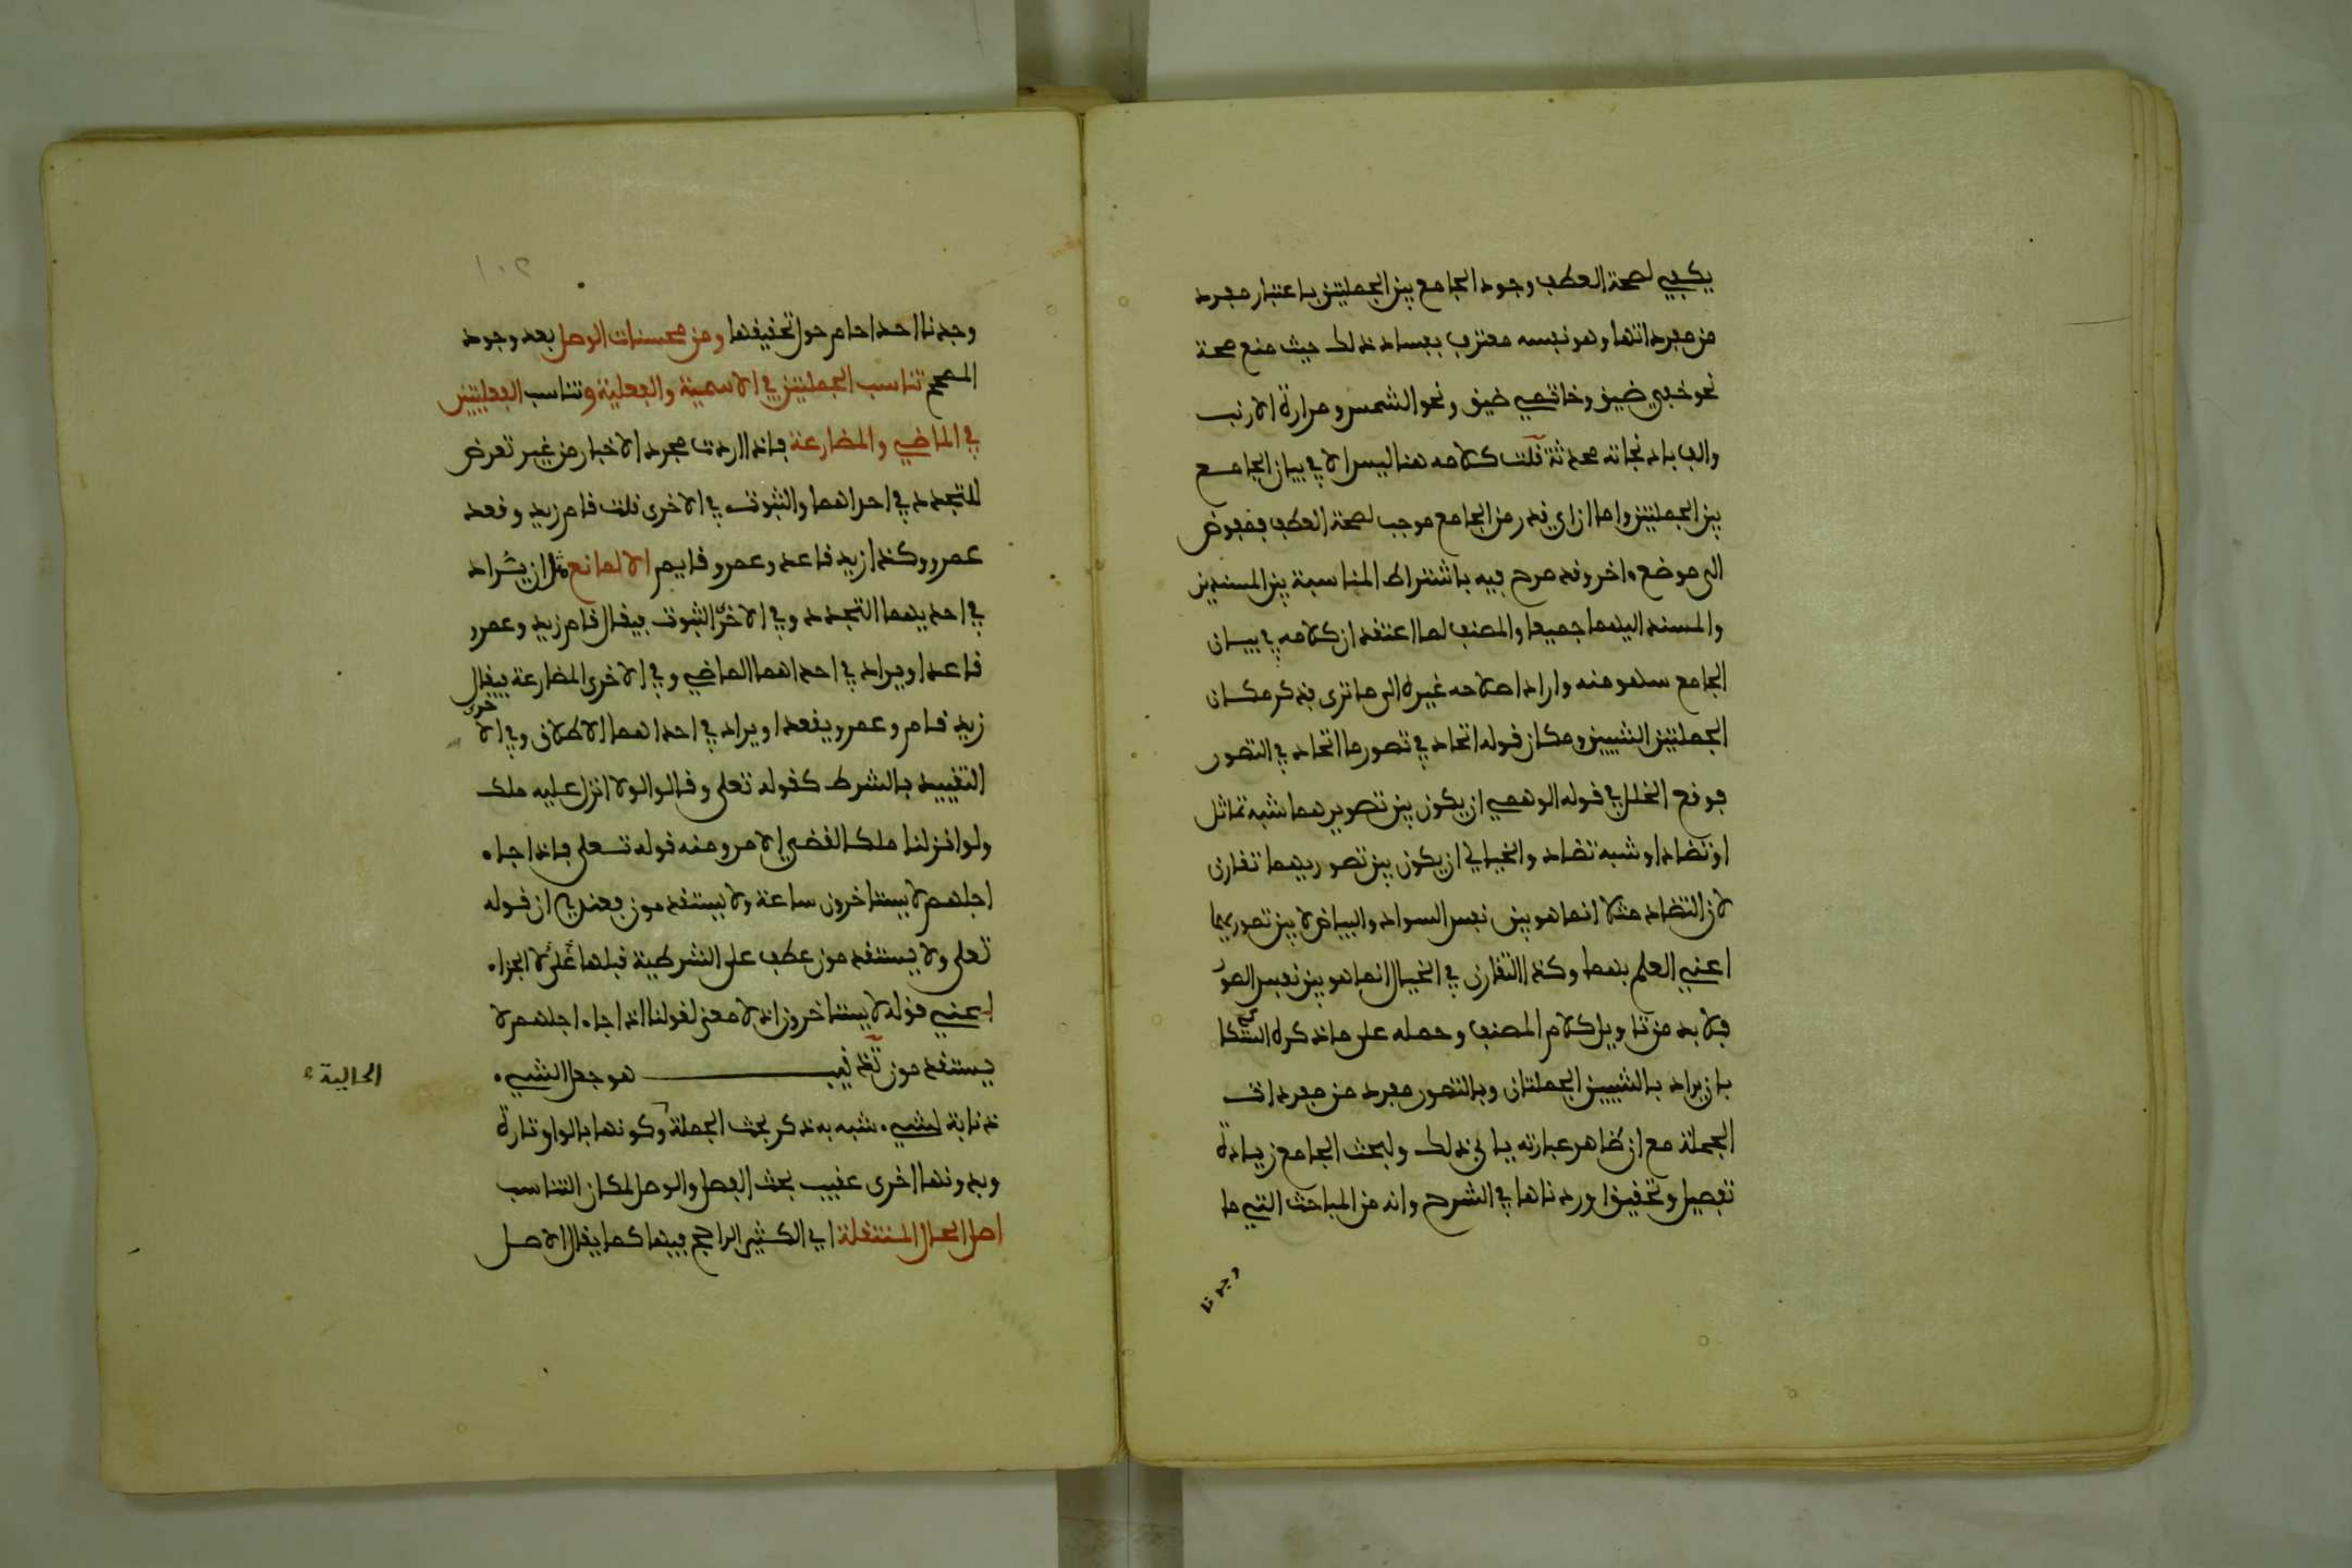 يكفي لصحة العطف وجود الجامع بين الجملتين باعتبار مفرد
من مفرداتها وهو نفسه معترف بفساد ذلك حيث منع صحة
نحو خفي ضيق وخاتمي ضيق ونحو الشمس ومرارة الارنب
والف باذنجانة محدثة قلت كلامه هنا ليس الا في بيان الجامع
بين الجملتين واما ان اي قدر من الجامع موجب لصحة العطف فمفوض
الى موضع ءاخر وقد صرح فيه باشتراط المناسبة بين المسندين
والمسند اليهما جميعا والمصنف لما اعتقد ان كلامه في بيان
الجامع سهو منه واراد اصلاحه غيره الى ما ترى فذكر مكان
الجملتين الشيئين ومكان قوله اتحاد في تصور ما اتحاد في التصور
فوقع الخلل في قوله الوهمي ان يكون بين تصويرهما شبه تماثل
او تضاد او شبه تضاد والخيالي ان يكون بين تصوريهما تقارن
لان التضاد مثلا انما هو بين نفس السواد والبياض لا بين تصوريهما
اعني العلم بهما وكذا التقارن في الخيال انما هو بين نفس الصور
فلا بد من تاويل كلام المصنف وحمله على ما ذكره السكاكي
بان يراد بالشيئين الجملتان وبالتصور مفرد من مفردات
الجملة مع ان ظاهر عبارته يابى ذلك ولبحث الجامع زيادة
تفصيل وتحقيق اوردناها في الشرح وانه من المباحث التي ما
وجدنا
١٠٢
وجدنا احدا حام حول تحقيقها ومن محسنات الوصل بعد وجود
المصحح تناسب الجملتين في الاسمية والفعلية وتناسب الفعليتين
في الماضي والمضارعة فاذا اردت مجرد الاخبار من غير تعرض
للتجدد في احداهما والثبوت في الاخرى قلت قام زيد وقعد
عمرو وكذا زيد قاعد وعمرو قايم الا لمانع مثل ان يراد
في احديهما التجدد وفي الاخرى الثبوت فيقال قام زيد وعمرو
قاعد او يراد في احداهما الماضي وفي الاخرى المضارعة فيقال
زيد قام وعمرو يقعد او يراد في احداهما الاطلاق وفي الاخرى
التقييد بالشرط كقوله تعلى وقالوا لولا انزل عليه ملك
ولو انزلنا ملكا لقضي الامر ومنه قوله تعلى فاذا جاء
اجلهم لا يستاخرون ساعة ولا يستقدمون فعندي ان قوله
تعلى ولا يستقدمون عطف على الشرطية قبلها لا على الجزاء
اعني قوله لا يستاخرون اذ لا معنى لقولنا اذا جاء اجلهم لا
يستقدمون تذنيب هو جعل الشيء
ذنابة لشيء شبه به ذكر بحث الجملة وكونها بالواو تارة
الحالية
وبدونها اخرى عقيب بحث الفصل والوصل لمكان التناسب
اصل الحال المنتقلة اي الكثير الراجح فيها كما يقال الاصل